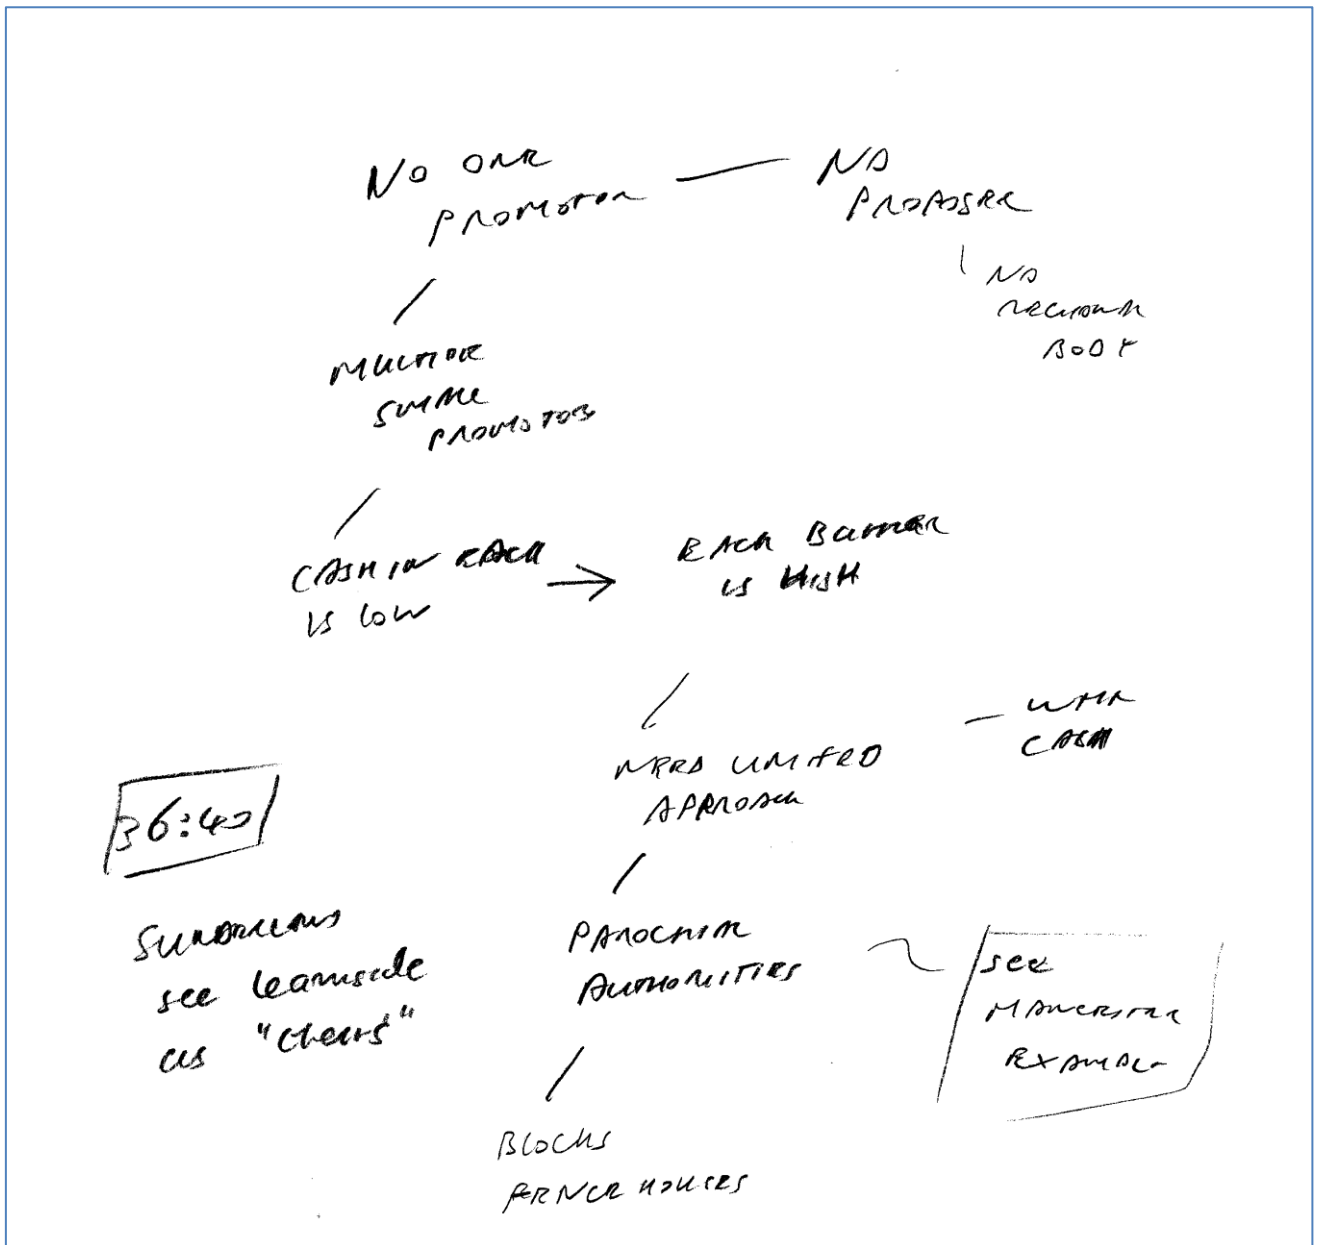 NO ONE
PROMOTOR
NO
PROPOSER
NO
REGIONAL
BODY
MULTIPLE
SMALL
PROMOTORS
CASH IN EACH
IS LOW
EACH BARRIER
IS HIGH
NEED UNITED
APPROACH
WITH
CASH
36:40
see leamside
as
PAROCHIAL
AUTHORITIES
see
MANCHESTER
EXAMPLE
BLOCKS
HOUSES